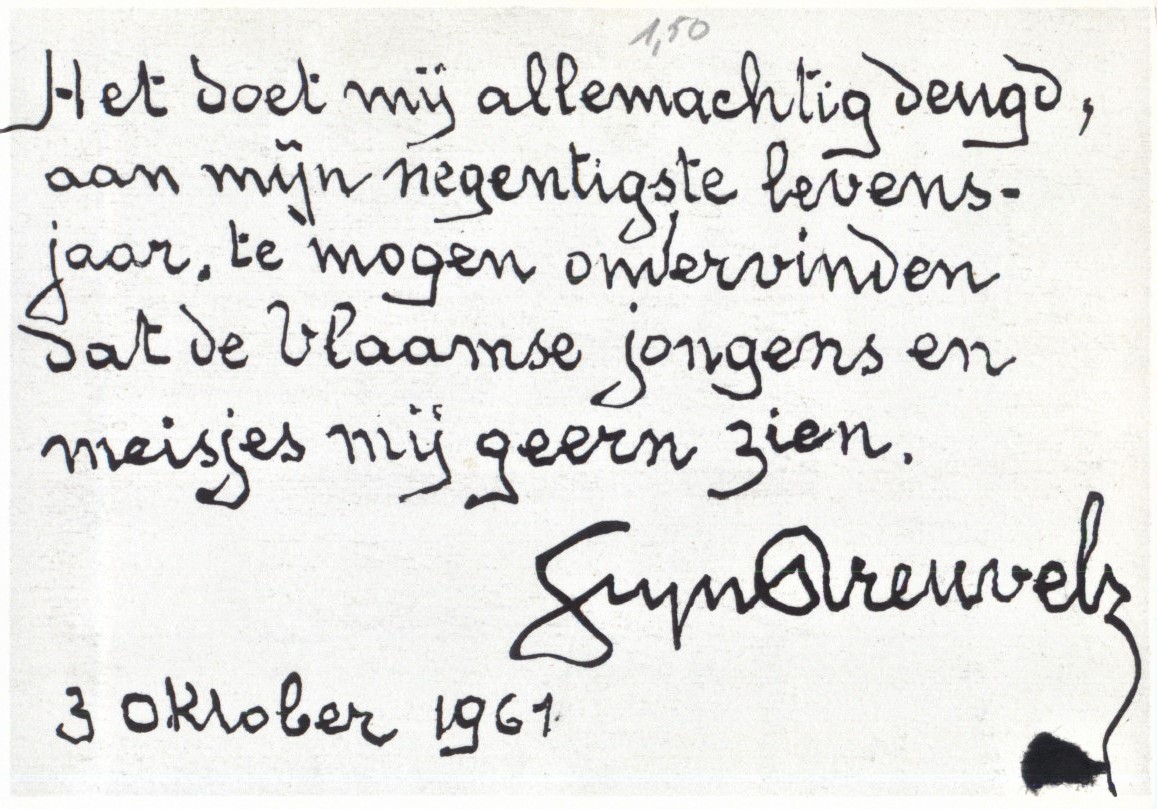 1,50
Het doet mij allemachtig deugd,
aan mijn negentigste levens-
jaar, te mogen ondervinden
dat de Vlaamse jongens en
meisjes mij geern zien.
Stijn Streuvels
3 Oktober 1961